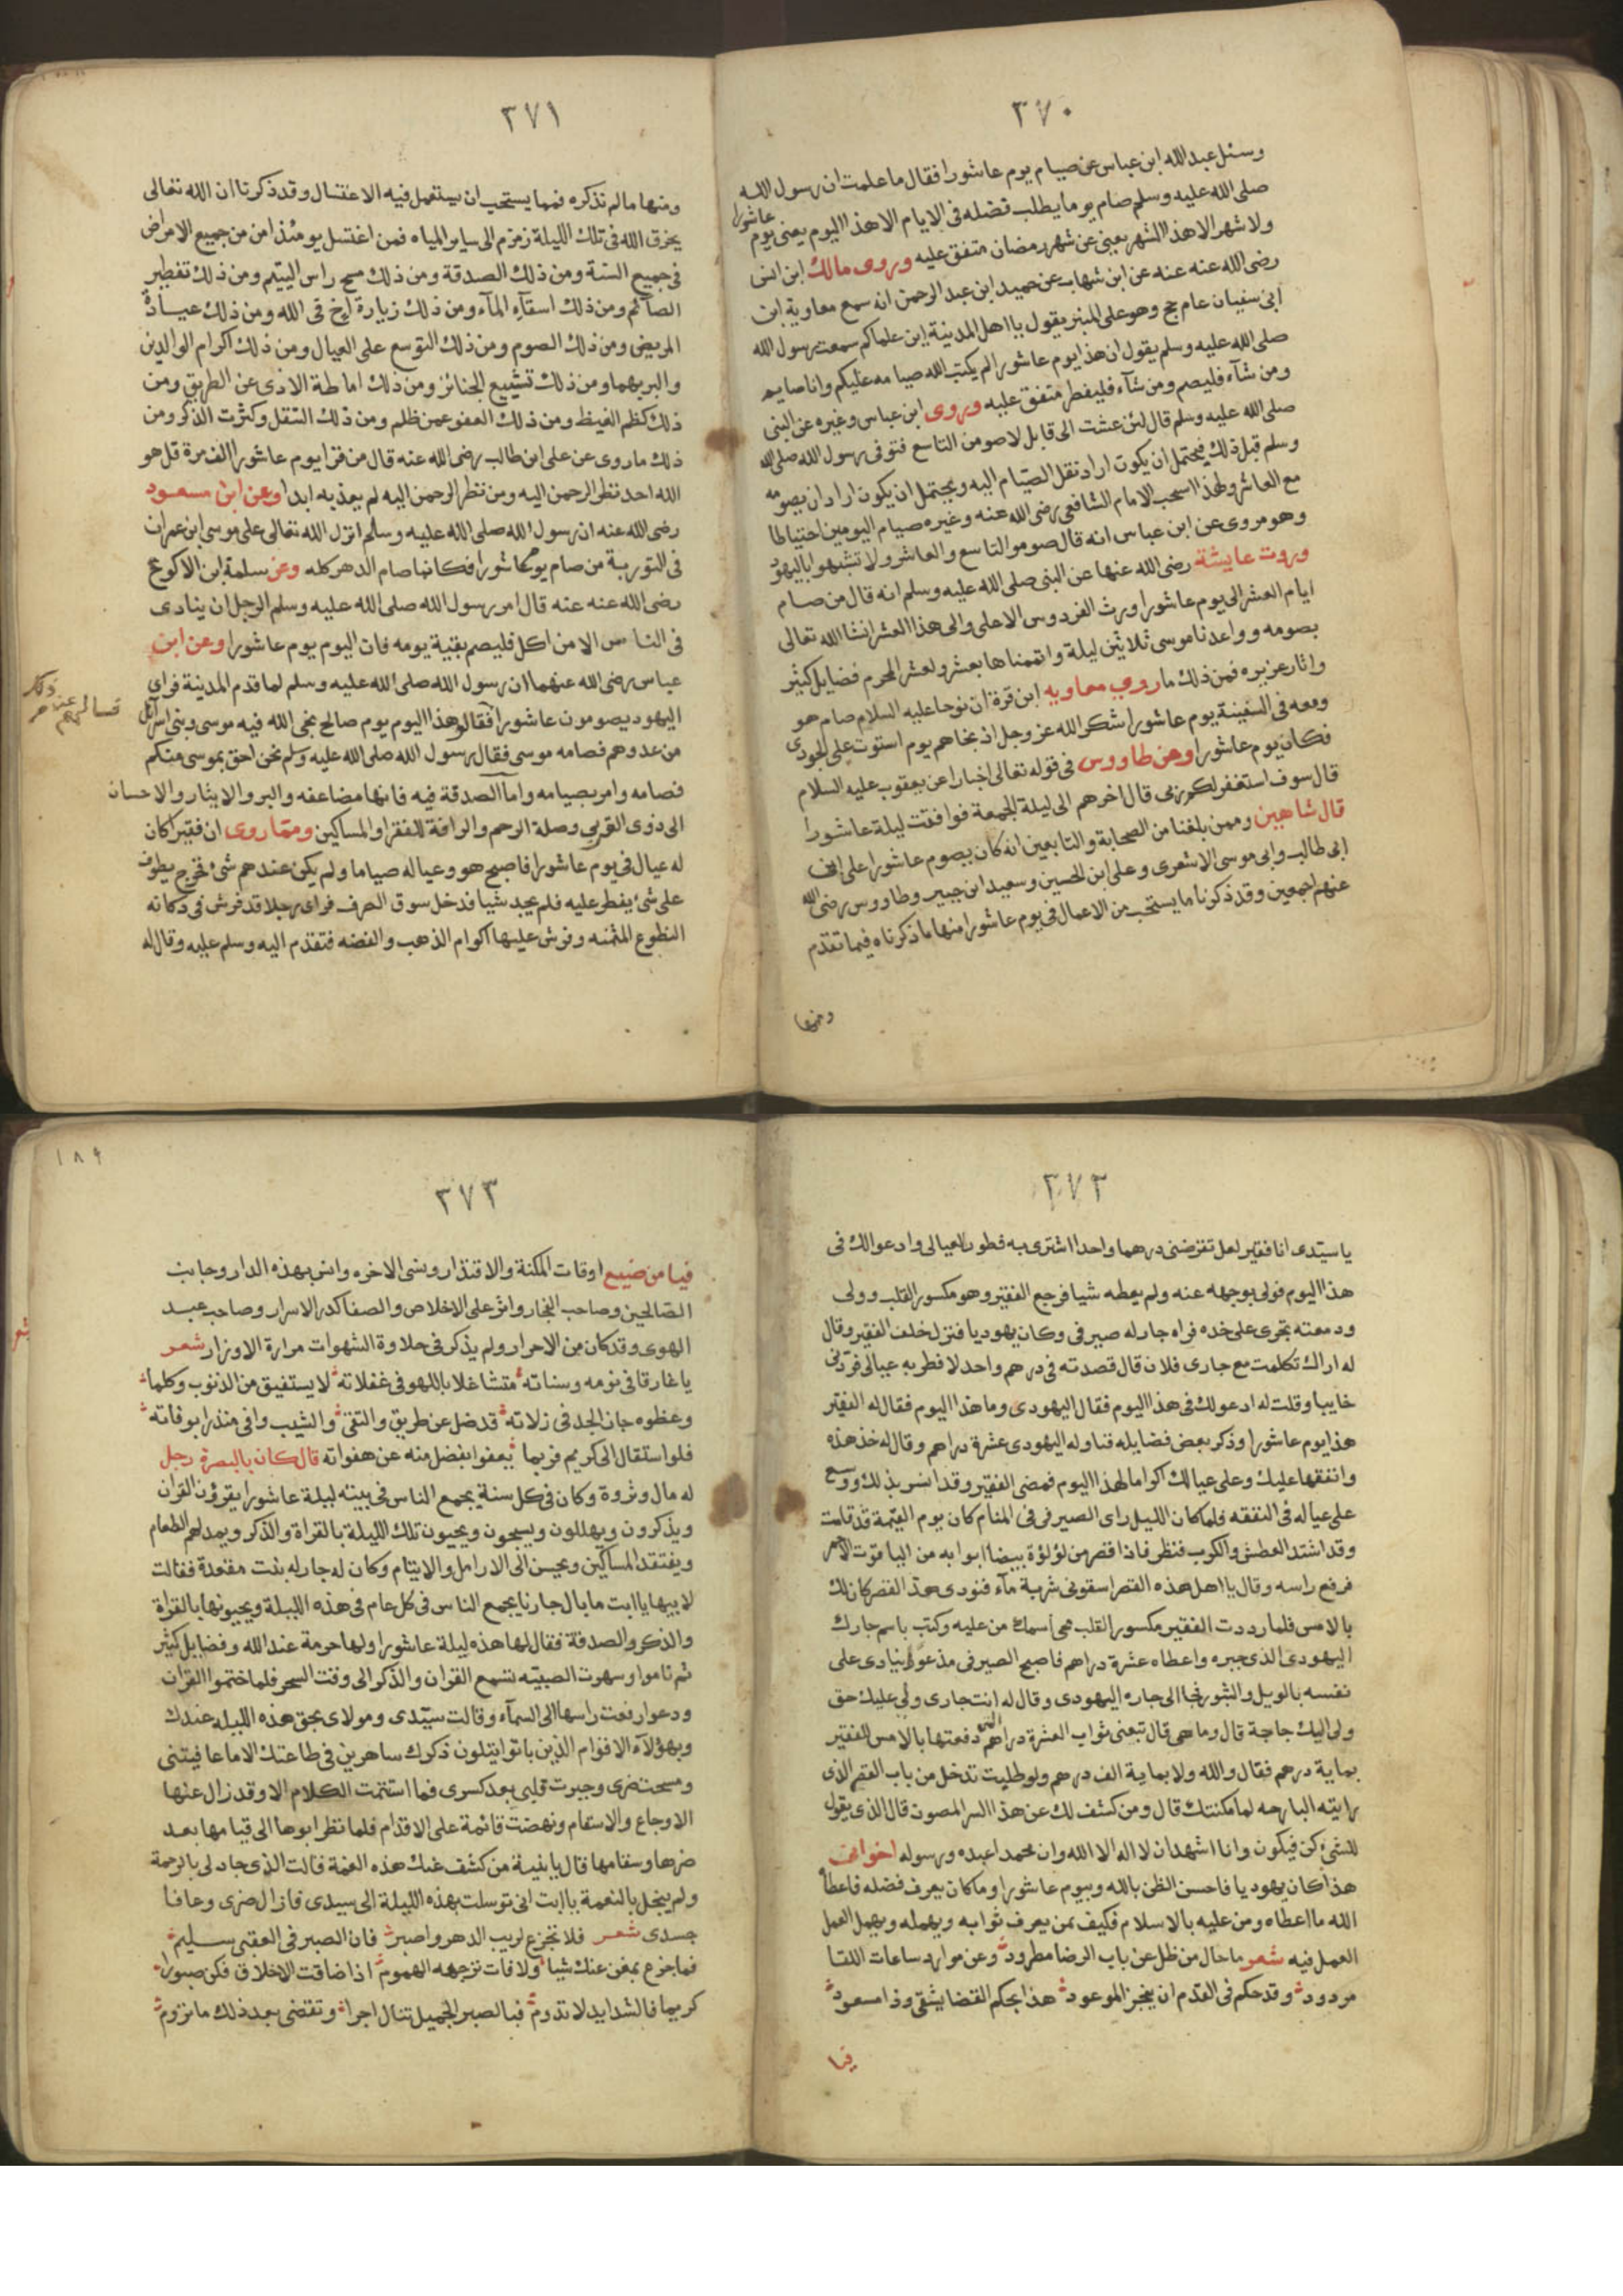 ٣٧٠
وسئل عبد الله ابن عباس عن صيام يوم عاشورا فقال ما علمت ان رسول الله
صلى الله عليه وسلم صام يوما يطلب فضله فى الايام الا هذا اليوم يعنى يوم عاشورا
ولا شهر الا هذا الشهر يعنى عن شهر رمضان متفق عليه وروى مالك ابن انس
رضى الله عنه عنه عن ابن شهاب عن حميد ابن عبد الرحمن انه سمع معاوية ابن
ابى سفيان عام حج وهو على المنبر يقول يا اهل المدينة اين علماكم سمعت رسول الله
صلى الله عليه وسلم يقول ان هذا يوم عاشورا لم يكتب الله صيامه عليكم وانا صايم
ومن شآء فليصم ومن شآء فليفطر متفق عليه وروى ابن عباس وغيره عن النبى
صلى الله عليه وسلم قال لئن عشت الى قابل لاصومن التاسع فتوفى رسول الله صلى الله
وسلم قبل ذلك فيحتمل ان يكون اراد نقل الصيام اليه ويحتمل ان يكون اراد ان يصومه
مع العاشر ولهذا استحب الامام الشافعى رضى الله عنه وغيره صيام اليومين احتياطا
وهو مروى عن ابن عباس انه قال صوموا التاسع والعاشر ولا تشبهوا باليهود
وروت عايشة رضى الله عنها عن النبى صلى الله عليه وسلم انه قال من صام
ايام العشر الى يوم عاشورا ورث الفردوس الاعلى والى هذا العشر انشا الله تعالى
بصومه وواعدنا موسى ثلاثين ليلة واتممناها بعشر ولعشر المحرم فضايل كثير
واثار عزيره فمن ذلك ما روى معاويه ابن قرة ان نوحا عليه السلام صام هو
ومعه فى السفينة يوم عاشورا شكر الله عز وجل اذ نجاهم يوم استوت على الجودى
فكان يوم عاشورا وعن طاووس فى قوله تعالى اخبارا عن يعقوب عليه السلام
قال سوف استغفر لكم ربى قال اخرهم الى ليلة الجمعة فوافقت ليلة عاشورا
قال شاهين وممن بلغنا من الصحابة والتابعين انه كان يصوم عاشورا على ابن
ابى طالب وابى موسى الاشعرى وعلى ابن الحسين وسعيد ابن جبير وطاووس رضى الله
عنهم اجمعين وقد ذكرنا ما يستحب من الاعمال فى يوم عاشورا منها ما ذكرناه فيما تقدم
ومنها
٣٧١
ومنها ما لم نذكره فمما يستحب ان يستعمل فيه الاغتسال وقد ذكرنا ان الله تعالى
يخرق الله فى تلك الليلة زمزم الى ساير المياه فمن اغتسل يومئذ امن من جميع الامراض
فى جميع السنة ومن ذلك الصدقة ومن ذلك مسح راس اليتيم ومن ذلك تفطير
الصآئم ومن ذلك اسقآء المآء ومن ذلك زيارة اخ فى الله ومن ذلك عيادة
المريض ومن ذلك الصوم ومن ذلك التوسع على العيال ومن ذلك اكرام الوالدين
والبر بهما ومن ذلك تشييع الجنائز ومن ذلك اماطة الاذى عن الطريق ومن
ذلك كظم الغيظ ومن ذلك العفو عمن ظلم ومن ذلك التنقل وكثرت الذكر ومن
ذلك ما روى عن على ابن طالب رضى الله عنه قال من قرا يوم عاشورا الف مرة قل هو
الله احد نظر الرحمن اليه ومن نظر الرحمن اليه لم يعذبه ابدا وعن ابن مسعود
رضى الله عنه ان رسول الله صلى الله عليه وسلم انزل الله تعالى على موسى ابن عمران
فى التورية من صام يوم عاشورا فكانما صام الدهر كله وعن سلمة ابن الاكوع
رضى الله عنه عنه قال امر رسول الله صلى الله عليه وسلم الرجل ان ينادى
فى الناس الا من اكل فليصم بقية يومه فان اليوم يوم عاشورا وعن ابن
عباس رضى الله عنهما ان رسول الله صلى الله عليه وسلم لما قدم المدينة فراى
اليهود يصومون عاشورا فقالو هذا اليوم يوم صالح نجى الله فيه موسى وبنى اسرآئل
فسالهم عن ذلك
من عدوهم فصامه موسى فقال رسول الله صلى الله عليه وسلم نحن احق بموسى منكم
فصامه وامر بصيامه واما الصدقة فيه فانها مضاعفه والبر والايثار والاحسان
الى ذوى القربى وصلة الرحم والرافة للفقرا والمساكين ومما روى ان فقيرا كان
له عيال فى يوم عاشورا فاصبح هو وعياله صياما ولم يكن عندهم شئ فخرج يطوف
على شئ يفطر عليه فلم يجد شيا فدخل سوق الصرف فراى رجلا قد فرش فى دكانه
النطوع المثمنه وفرش عليها اكوام الذهب والفضه فتقدم اليه وسلم عليه وقال له
٣٧٢
يا سيدى انا فقير لعل تقرضنى درهما واحدا اشترى به فطور لعيالى وادعوا لك فى
هذا اليوم فولى بوجهه عنه ولم يعطه شيا فرجع الفقير وهو مكسور القلب وولى
ودمعته تجرى على خده فراه جار له صيرفى وكان يهوديا فنزل خلف الفقير وقال
له اراك تكلمت مع جارى فلان قال قصدته فى درهم واحد لافطر به عيالى فردنى
خايبا وقلت له ادعو لك فى هذا اليوم فقال اليهودى وما هذا اليوم فقال له الفقير
هذا يوم عاشورا وذكر بعض فضايله فناوله اليهودى عشرة دراهم وقال له خذ هذه
وانفقها عليك وعلى عيالك اكراما لهذا اليوم فمضى الفقير وقد انسر بذلك ووسع
على عياله فى النفقه فلما كان الليل راى الصيرفى فى المنام كان يوم القيمة قد قامت
وقد اشتد العطش والكرب فنظر فاذا قصر من لؤلؤة بيضا ابوابه من الياقوت الاحمر
فرفع راسه وقال يا اهل هذه القصر اسقونى شربة مآء فنودى هذا القصر كان لك
بالامس فلما رددت الفقير مكسور القلب محى اسمك من عليه وكتب باسم جارك
اليهودى الذى جبره واعطاه عشرة دراهم فاصبح الصيرفى مذعورا ينادى على
نفسه بالويل والثبور فجا الى جاره اليهودى وقال له انت جارى ولى عليك حق
ولى اليك حاجة قال وما هى قال تبعنى ثواب العشرة دراهم التى دفعتها بالامس للفقير
بماية درهم فقال والله ولا بماية الف درهم ولو طلبت تدخل من باب القصر الذى
رايته البارحه لما مكنتك قال ومن كشف لك عن هذا السر المصون قال الذى يقول
للشئ كن فيكون وانا اشهد ان لا اله الا الله وان محمدا عبده ورسوله اخوانى
هذا كان يهوديا فاحسن الظن بالله وبيوم عاشورا وما كان يعرف فضله فاعطاه
الله ما اعطاه ومن عليه بالاسلام فكيف بمن يعرف ثوابه ويهمله ويهمل العمل
العمل فيه شعر ما حال من ظل عن باب الرضا مطرود وعن موارد ساعات اللقا
مردود وقد حكم فى القدم ان ينجز الموعود هذا بحكم القضا يشقى وذا مسعود
فيا
١٨٩
٣٧٣
فيا من ضيع اوقات المكنة والاقتدار ونسى الاخره وانس بهذه الدار وجانب
الصالحين وصاحب الفجار واثر على الاخلاص والصفا كدر الاسرار وصاحب عبد
الهوى وقد كان من الاحرار ولم يذكر فى حلاوة الشهوات مرارة الاوزار شعر
يا غارقا فى نومه وسناته متشاغلا باللهو فى غفلاته لا يستفيق من الذنوب وكلما
وعظوه جاز الحد فى زلاته قد ضل عن طريق والتقى والشيب وافى منذرا بوفاته
فلو استقال الى كريم فربما يعفوا بفضل منه عن هفواته قال كان بالبصرة رجل
له مال وثروة وكان فى كل سنة يجمع الناس فى بيته ليلة عاشورا يقرؤن القرآن
ويذكرون ويهللون ويسبحون ويحيون تلك الليلة بالقراة والذكر ويمد لهم الطعام
ويفتقد المساكين ويحسن الى الارامل والايتام وكان له جار له بنت مقعدة فقالت
لابيها يا ابت ما بال جارنا يجمع الناس فى كل عام فى هذه الليلة ويحيونها بالقراة
والذكر والصدقة فقال لها هذه ليلة عاشورا ولها حرمة عند الله وفضايل كثير
ثم ناموا وسهرت الصبيه تسمع القران والذكر الى وقت السحر فلما ختموا القران
ودعوا رفعت راسها الى السمآء وقالت سيدى ومولاى بحق هذه الليله عندك
وبهؤلآء الاقوام الذين باتوا يتلون ذكرك ساهرين فى طاعتك الا ما عافيتنى
ومسحت ضرى وجبرت قلبى بعد كسرى فما استتمت الكلام الا وقد زال عنها
الاوجاع والاسقام ونهضت قائمة على الاقدام فلما نظر ابوها الى قيامها بعد
ضرها وسقامها قال يا بنية من كشف عنك هذه الغمة قالت الذى جاد لى بالرحمة
ولم يبخل بالنعمة يا ابت انى توسلت بهذه الليلة الى سيدى فازال ضرى وعافا
جسدى شعر فلا تجزع لريب الدهر واصبر فان الصبر فى العقبى سليم
فما جزع بمغن عنك شيا ولا فات ترجهه الهموم اذا ضاقت الاخلاق فكن صبورا
كريما فالشدايد لا تدوم فبا الصبر الجميل تنال اجرا وتقضى بعد ذلك ما تروم